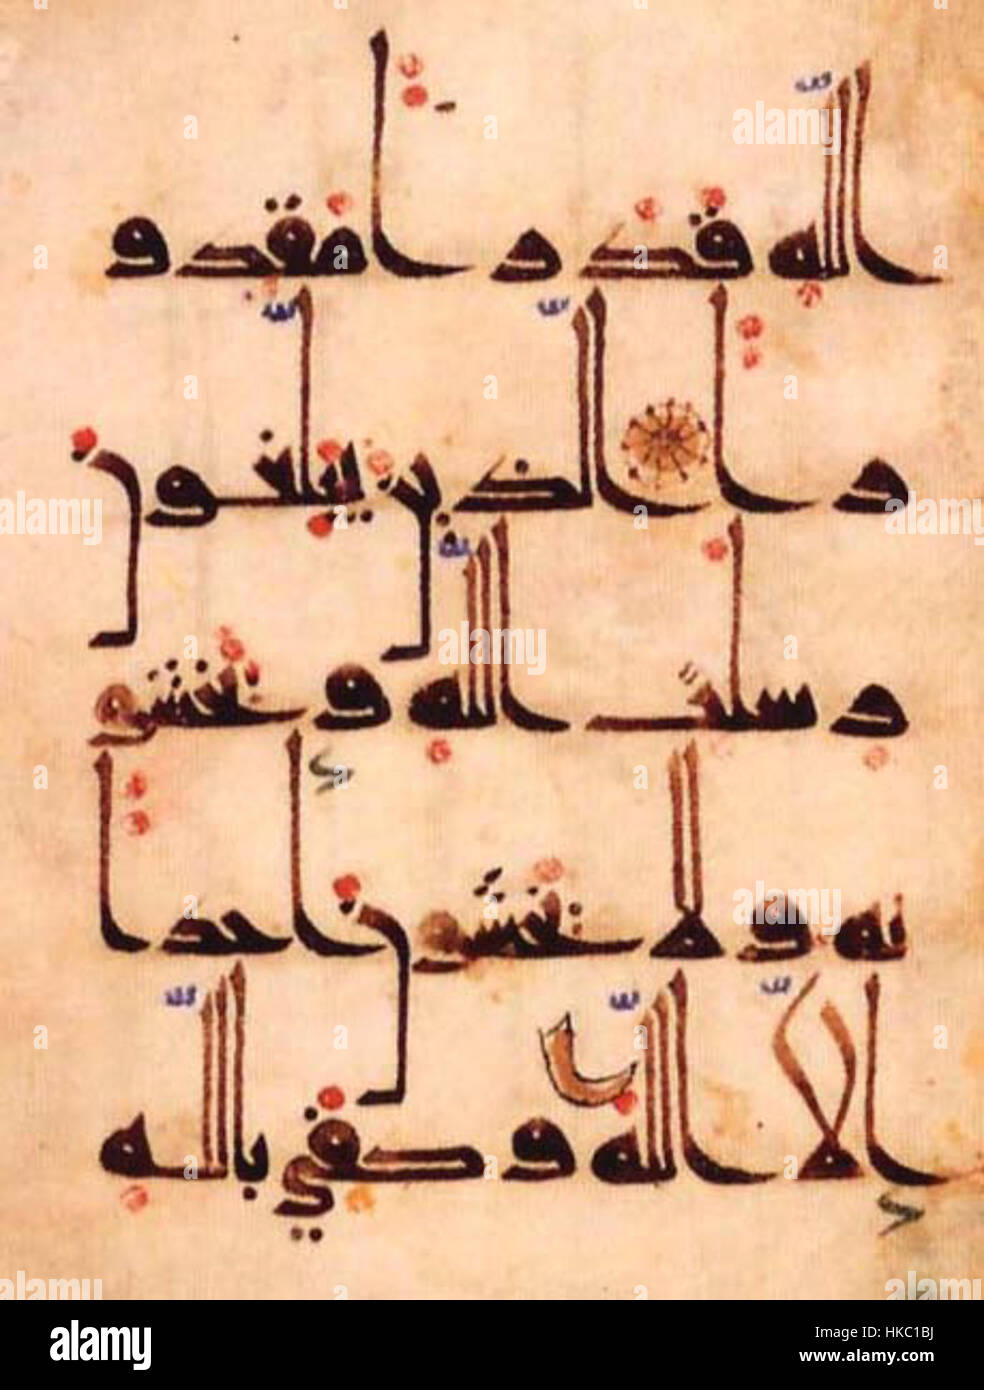 الله قدرا مقدو
را الذين يبلغون
رسلت الله ويخشو
نه ولا يخشون احدا
إلا الله وكفى بالله
alamy
Image ID: HKC1BJ
www.alamy.com